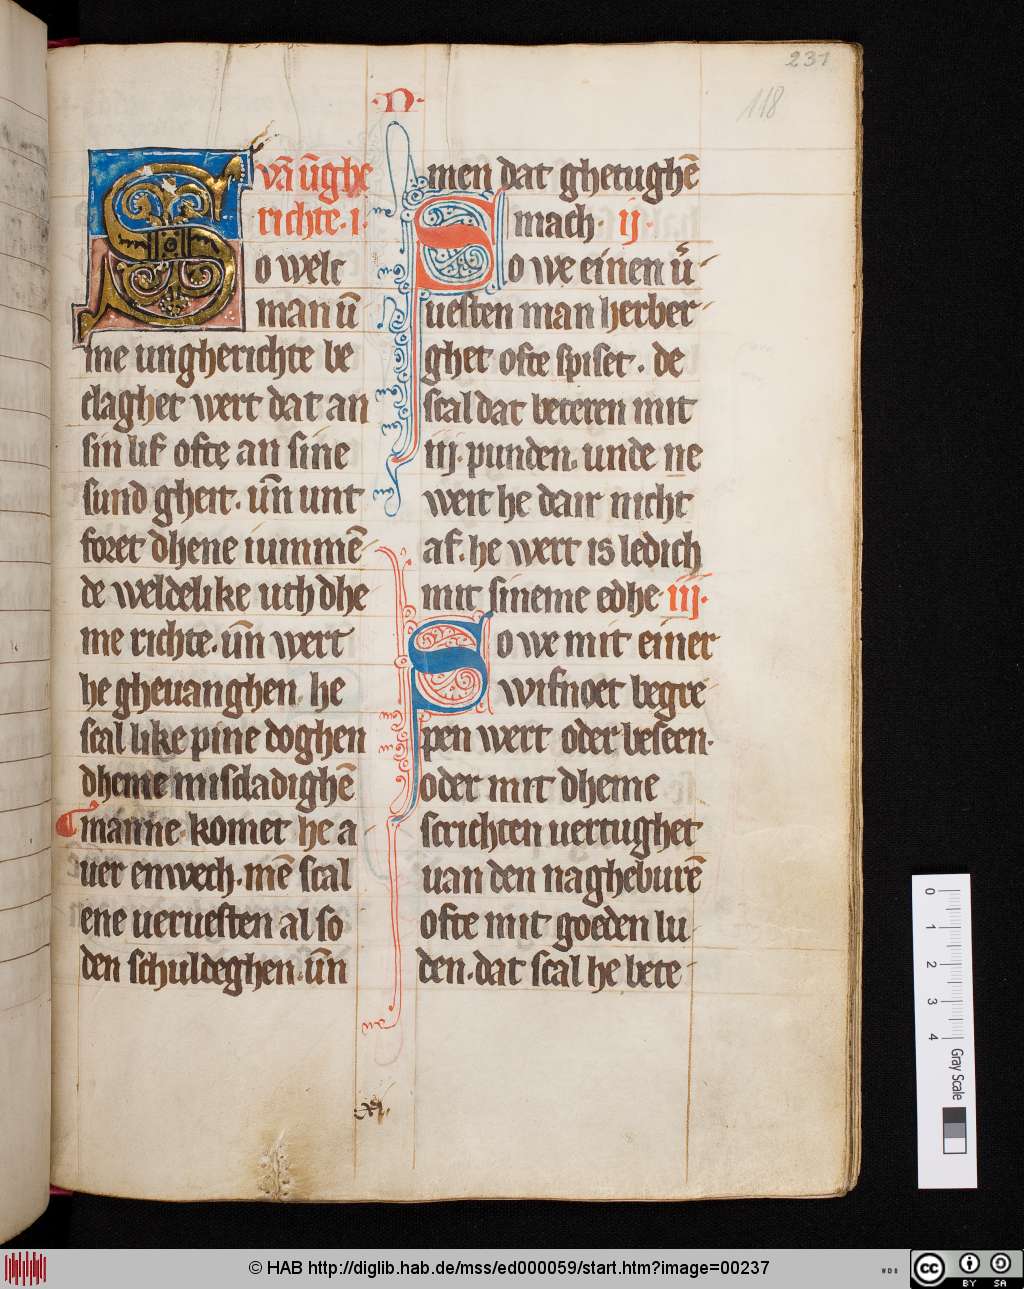 231
118
·N·
vā ūghe
richte · i ·
So welc
man ū
me ungherichte be
claghet wert dat an
sin lif ofte an sine
sund gheit · un̄ unt
foret dhene iummē
de weldelike uth dhe
me richte · un̄ wert
he gheuanghen he
scal like pine doghen
dheme misdadighē
manne · komet he a
uer enwech · mē scal
ene ueruesten al so
den schuldeghen · un̄
men dat ghetughē
mach · ij ·
So we einen ū
uesten man herber
ghet ofte spiset · de
scal dat beteren mit
iij · punden · unde ne
weit he dair nicht
af · he wert is ledich
mit sineme edhe · iij ·
So we mit einer
wifnoet begre
pen wert oder beseen ·
oder mit dheme
scrichten uertughet
uan den nagheburē
ofte mit goeden lu
den · dat scal he bete
0
1
2
3
4
Gray Scale
© HAB http://diglib.hab.de/mss/ed000059/start.htm?image=00237
WDB
cc
BY SA